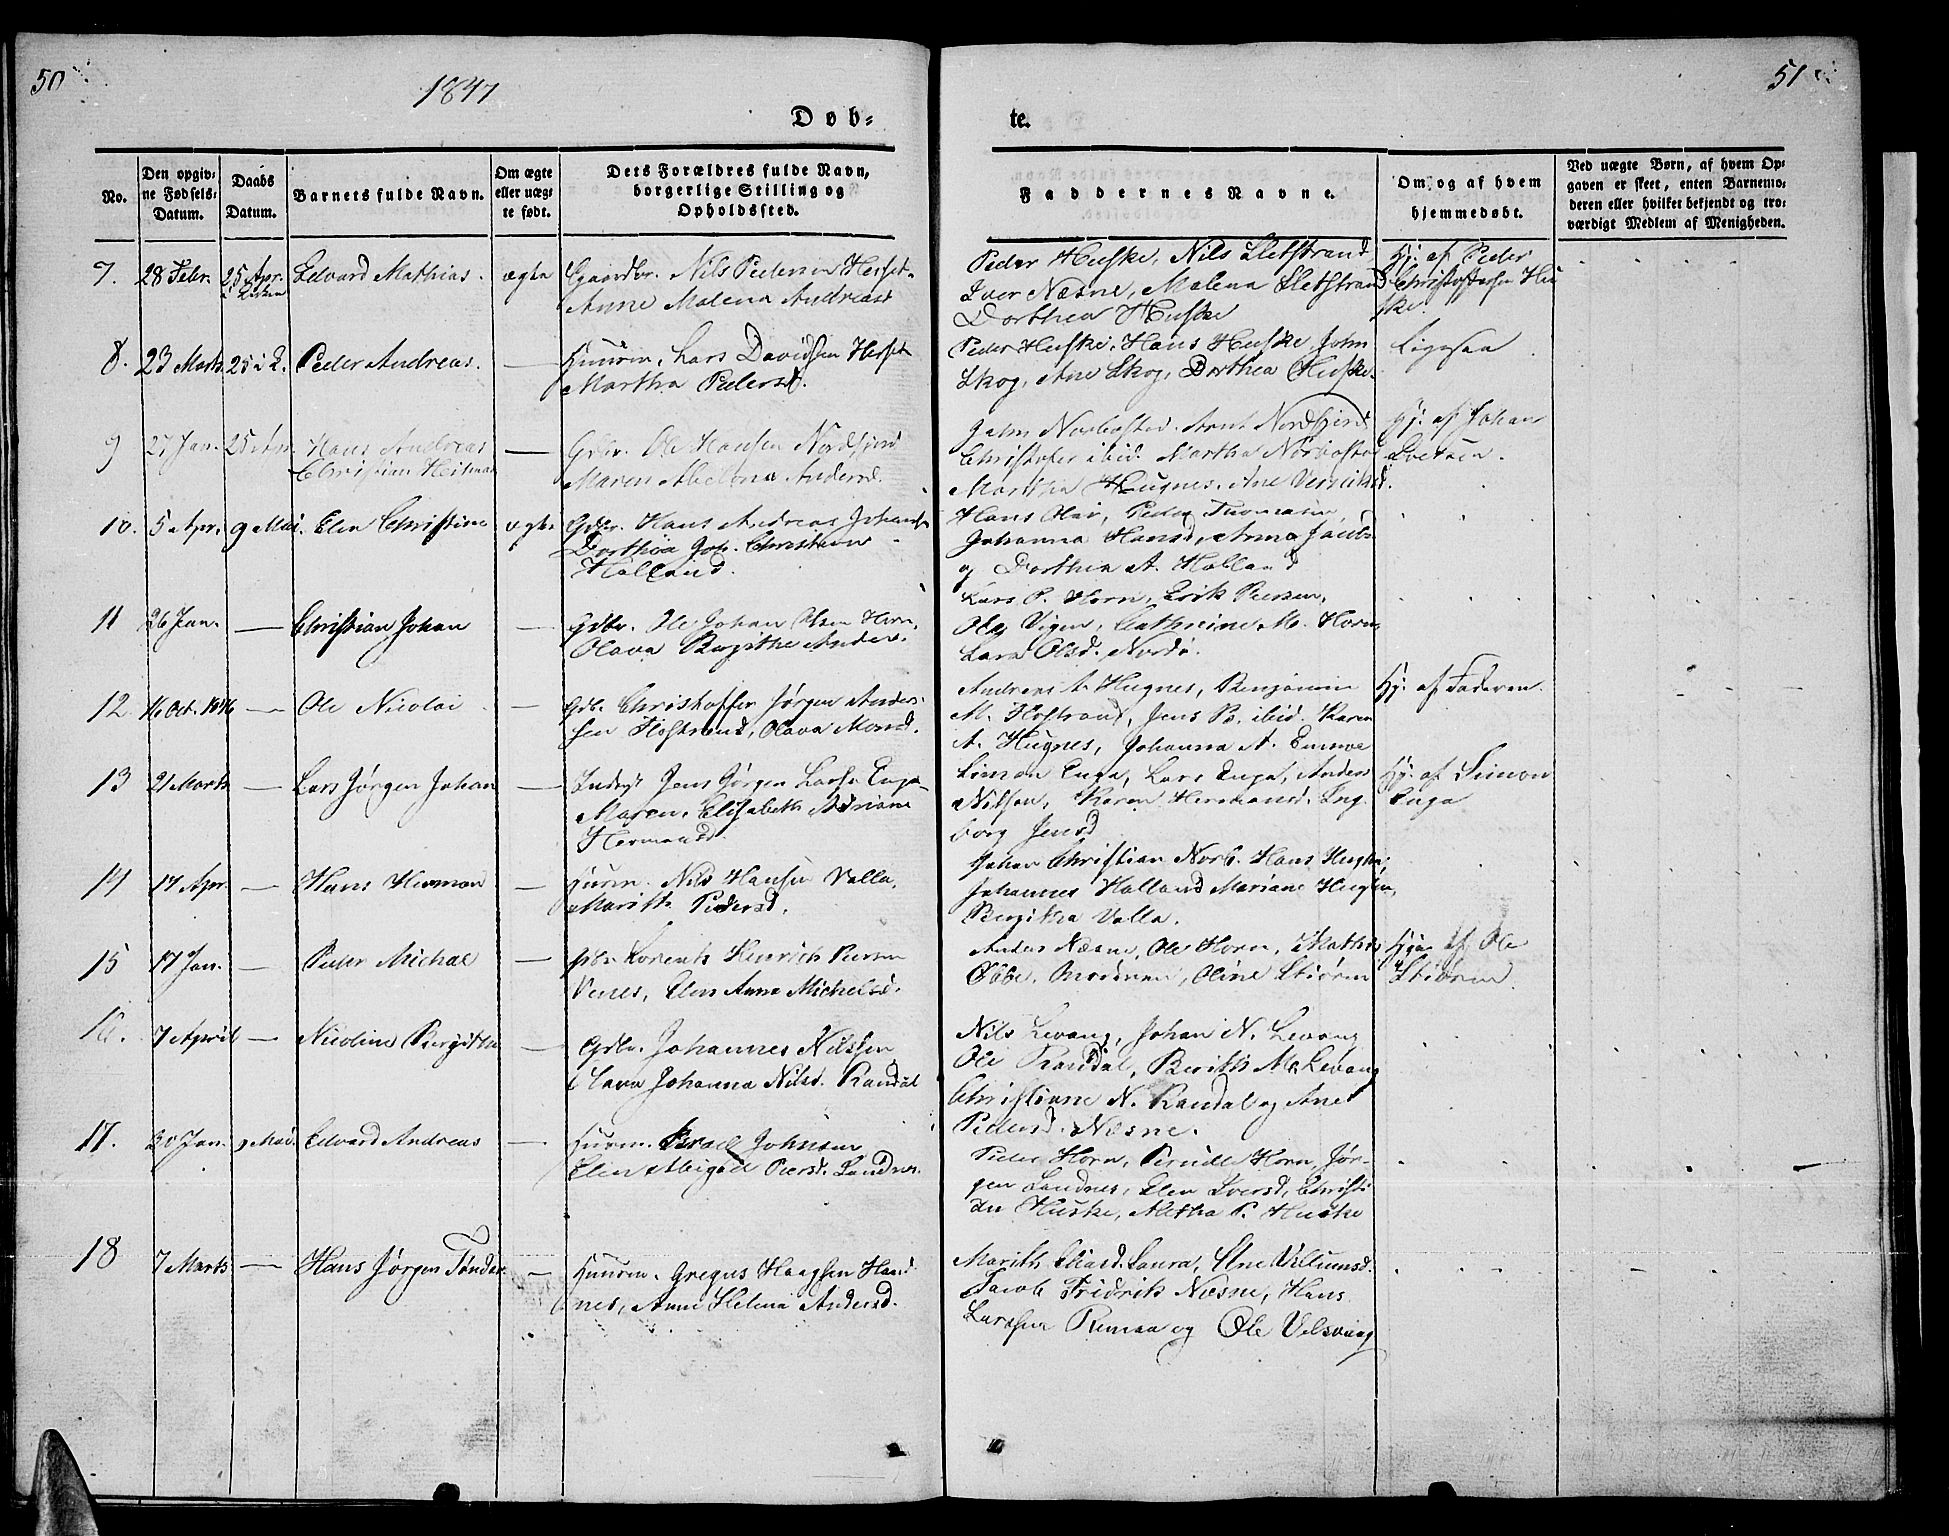 50
1847
51
Døb=
te.
No.
Den opgiv=
ne Fødsels=
Datum.
Daabs
Datum.
Barnets fulde Navn.
Om ægte
eller uæg=
te født.
Dets Forældres fulde Navn,
borgerlige Stilling og
Opholdssted.
Faddernes Navne.
Om, og af hvem
hjemmedøbt.
Ved uægte Børn, af hvem Op=
gaven er skeet, enten Barnemo=
deren eller hvilket bekjendt og tro=
værdigt Medlem af Menigheden.
7. 28 Febr. 25 Apr. Edvard Mathias. ægte Gaardbr. Nils Pedersen Herset
Anne Malena Andreasd
Peder Huske, Nils Sletstrand
Iver Næsne, Malena Sletstrand
Dorthea Huske
Hj. af Peder
Christoffersen Hu
ske.
8. 23 Marts 25 i L. Peder Andreas. — Huusm. Lars Davidsen Herset
Martha Pedersd.
Peder Huske, Hans Huske, John
Skog, Ane Skog, Dorthea Huske.
Ligesaa
9 27 Jan. 25 Apr. Hans Andreas
Christian Heitman
— Gdbr. Ole Hansen Nordfjord
Maren Abelona Andersd.
John Norbostad. Arnt Nordfjord
Christofer ibid. Martha Norbosta
Martha Hugnes. Ane
Hj. af Johan
10. 5 Apr. 9 Mai. Elen Christine ægte Gdbr. Hans Andreas Johans
Dorthea Joh. Christian
Halland.
Hans Olai, Peder Thomasen,
Johanna Hansd, Anna Jacobs
og Dorthea A. Halland
11 26 Jan. — Christian Johan — Gdbr. Ole Johan Olsen Horn,
Olava Birgithe Anders.
Lars P. Horn, Erik Persen,
Ole Vigen, Cathrine M. Horn,
Lava Olsd. Nordø.
12 16 Oct. 1846 — Ole Nicolai — Gdb. Christoffer Jørgen Ander=
sen Flostrand, Olava Monsd.
Andreas A. Hugnes, Benjamin
M. Flostrand, Jens P. ibid. Karen
A. Hugnes, Johanna A.
Hj. af Faderen.
13 21 Marts — Lars Jørgen Johan — Jens Jørgen Larsen Enga
Maren Elisabeth Adriane
Hermansd
Simon Enga, Lars Enga, Anders
Nilsen, Karen Hermansd. Ing
borg Jensd
Hj. af Simon
Enga
14 17 Apr. — Hans Herman — Huusm. Nils Hansen Valla,
Marith Pedersd.
Johan Christian Norb. Hans
Johannes Halland Mariane
Birgitha Valla.
15 17 Jan. — Peder Michal — Gdbr Lorents Hinrich Persen
Venes, Elen Anna Michelsd.
Anders Næsne, Ole Horn,
Ebbe, Oline Stioren
Hj. af Ole
Stioren.
16. 7 April — Nicoline Birgitha — Gdbr. Johannes Nilssen
Lava Johanna Nilsd. Randal
Nils Levang, Johan N. Levang
Ole Randal, Berith M. Levang
Christianne N. Randal og Ane
Pedersd. Næsne.
17. 30 Jan. 9 Mai. Edvard Andreas — Huusm. Israel Johnsen
Elen Abigael Persd. Sandnes.
Peder Horn, Pernille Horn, Jør=
gen Sandnes, Elen Iversd, Christi
an Huske, Aletha P. Huske
18 7 Marts — Hans Jørgen Tønder — Huusm. Gregus Haagsen Hand
nes, Anne Helena Andersd.
Marith Eliasd. Laura, Ane Villumsd.
Jacob Fridrik Næsne, Hans
Larssen Remaa og Ole Velsvaag